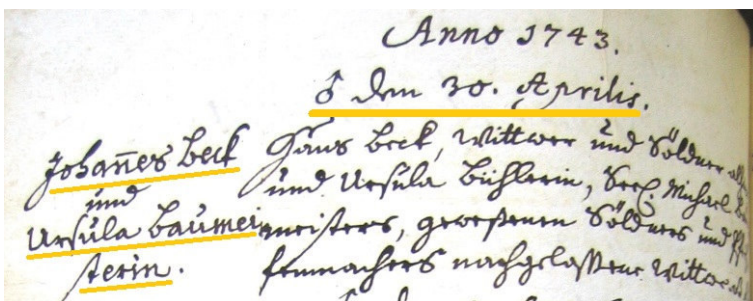 Anno 1743.
♂ den 30. Aprilis.
Johañes Beck
und
Ursula Baumei
sterin.
Hans Beck, Wittwer und Söldner
und Ursula Bühlerin, Seel. Michael
meisters, geweßenen Söldners und
nachgelaßene Wittwe